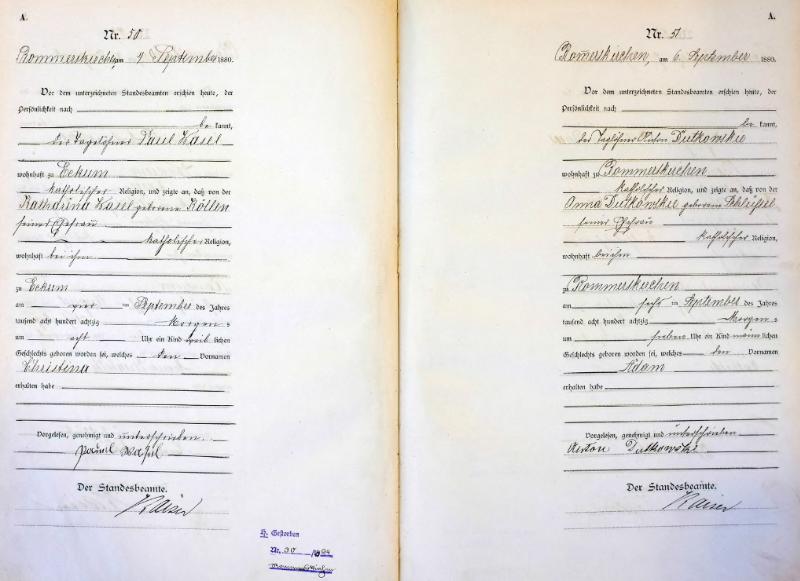 A.
Nr. 50
Rommerskirchen, am 4 September 1880.
Vor dem unterzeichneten Standesbeamten erschien heute, der
Persönlichkeit nach
be kannt,
der Tagelöhner
wohnhaft zu Eckum
katholischer Religion, und zeigte an, daß von der
Katharina geborene Köllen
seiner Ehefrau
katholischer Religion,
wohnhaft bei ihm
zu Eckum
am vier ten September des Jahres
tausend acht hundert achtzig Morgens
um acht Uhr ein Kind weib lichen
Geschlechts geboren worden sei, welches den Vornamen
Christina
erhalten habe
Vorgelesen, genehmigt und unterschrieben
Der Standesbeamte.
Kaiser
H. Gestorben
Nr.
A.
Nr. 51
Rommerskirchen, am 6. September 1880.
Vor dem unterzeichneten Standesbeamten erschien heute, der
Persönlichkeit nach
be kannt,
der Taglöhner Anton Dutkowskie
wohnhaft zu Rommerskirchen
katholischer Religion, und zeigte an, daß von der
Anna Dutkowskie geborene Schlüssel
seiner Ehefrau
katholischer Religion,
wohnhaft bei ihm
zu Rommerskirchen
am sechs ten September des Jahres
tausend acht hundert achtzig Morgens
um sieben Uhr ein Kind männ lichen
Geschlechts geboren worden sei, welches den Vornamen
Adam
erhalten habe
Vorgelesen, genehmigt und unterschrieben
Anton Dutkowski
Der Standesbeamte.
Kaiser